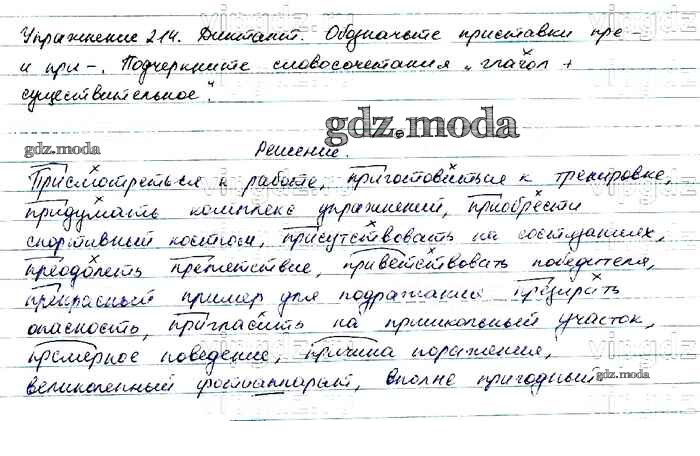 Упражнение 214. Диктант. Обозначьте приставки пре-
и при-. Подчеркните словосочетания „глагол +
существительное".
gdz.moda
gdz.moda Решение.
Присмотреться к работе, приготовиться к тренировке,
придумать комплекс упражнений, приобрести
спортивный костюм, присутствовать на состязаниях,
преодолеть препятствие, приветствовать победителя,
прекрасный пример для подражания презирать
опасность, пригласить на пришкольный участок,
премерное поведение, причина поражения,
великолепный фотоаппарат, вполне пригодный
gdz.moda